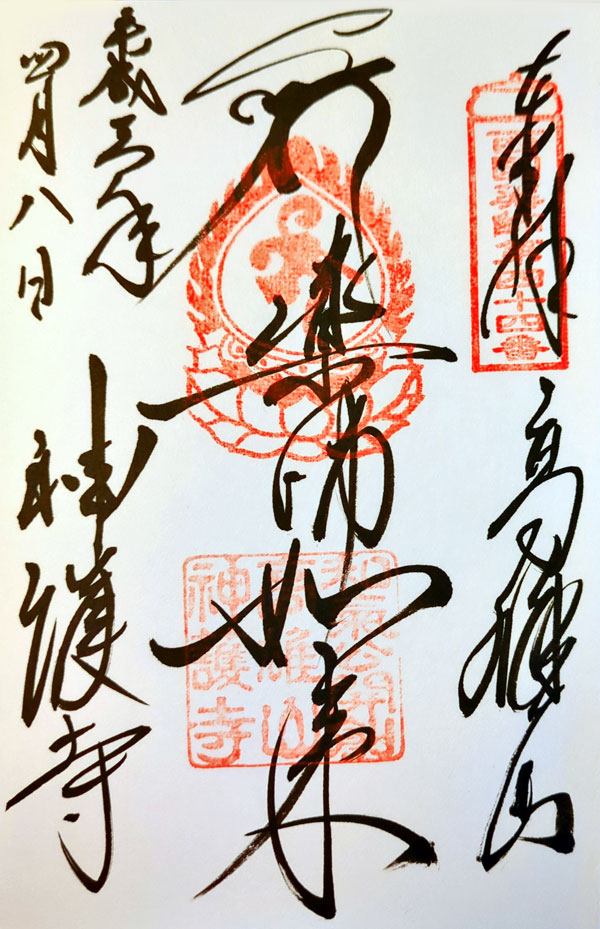 奉拝
西国薬師第四十四番
高雄山
薬師如来
高雄山
神護寺
平成三年
四月八日
神護寺